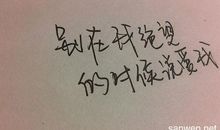 别在我绝望
的时候说爱我
sanwen.net